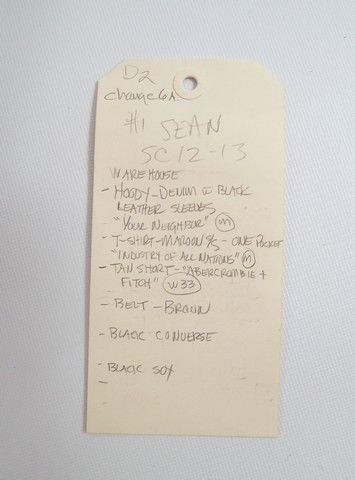 D2
change 6A
#1 SEAN
SC 12-13
WAREHOUSE
- HOODY - DENIM w BLACK
LEATHER SLEEVES
"YOUR NEIGHBOR" (M)
- T-SHIRT - MAROON S/S - ONE POCKET
"INDUSTRY OF ALL NATIONS" (M)
- TAN SHORT - "ABERCROMBIE +
FITCH" (W33)
- BELT - BROWN
- BLACK CONVERSE
- BLACK SOX
-